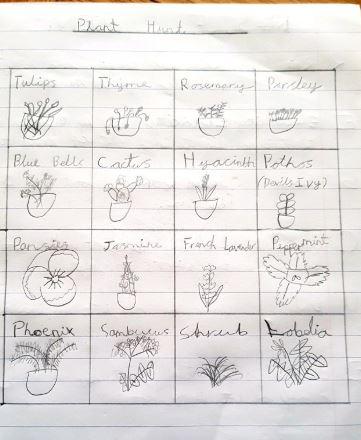 Plant Hunt
Tulips Thyme Rosemary Parsley
Blue Bells Cactus Hyacinth Pothos
(Devils Ivy)
Pansies Jasmine French Lavender Peppermint
Phoenix Sambucus Shrub Lobelia